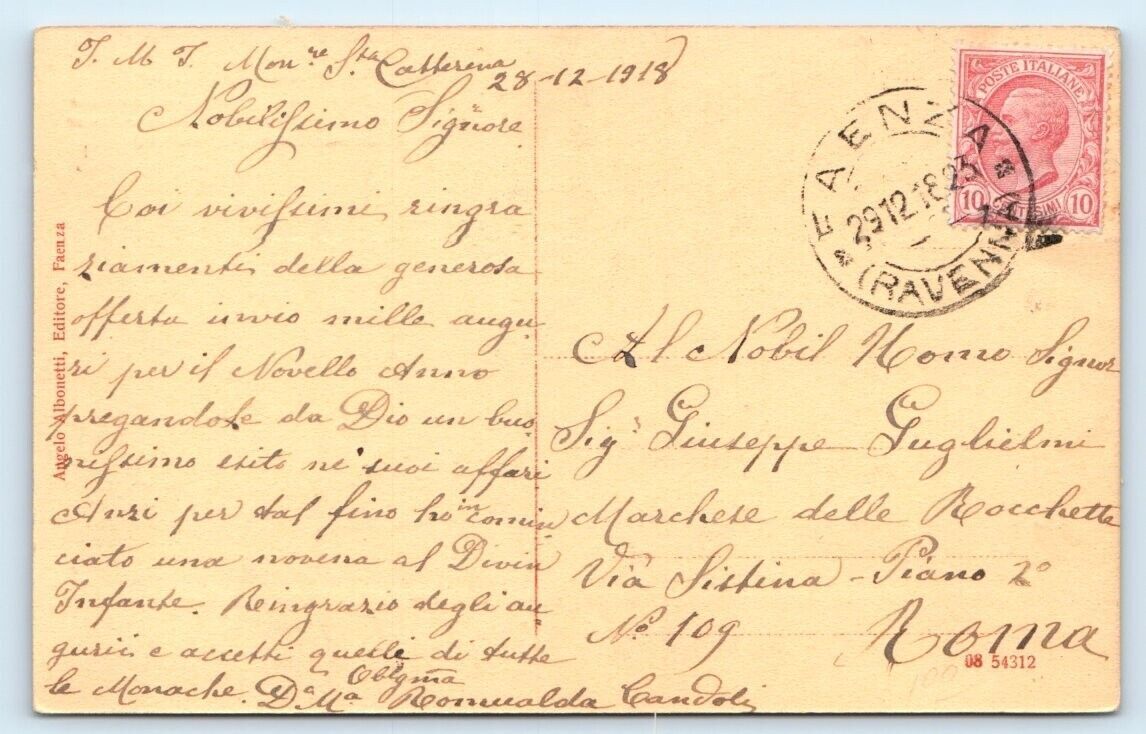 J. M. J. Mon.re S.ta Catterina
28-12-1918
Nobilissimo Signore
Coi vivissimi ringra
ziamenti della generosa
offerta invio mille augu
ri per il Novello Anno
pregandole da Dio un buo
nissimo esito ne' suoi affari
Anzi per tal fino ho incomin
ciato una novena al Divin
Infante. Reingrazio degli au
gurii e accetti quelli di tutte
le Monache. Obbgma
D.a M.a Romualda Candoli
Angelo Albonetti, Editore, Faenza
POSTE ITALIANE
10 CENTESIMI 10
FAENZA
29 12.18 23
(RAVENNA)
Al Nobil Homo Signor
Sig.r Giuseppe Guglielmi
Marchese delle Rocchette
Via Sistina - Piano 2º
Nº 109 Roma
08 54312